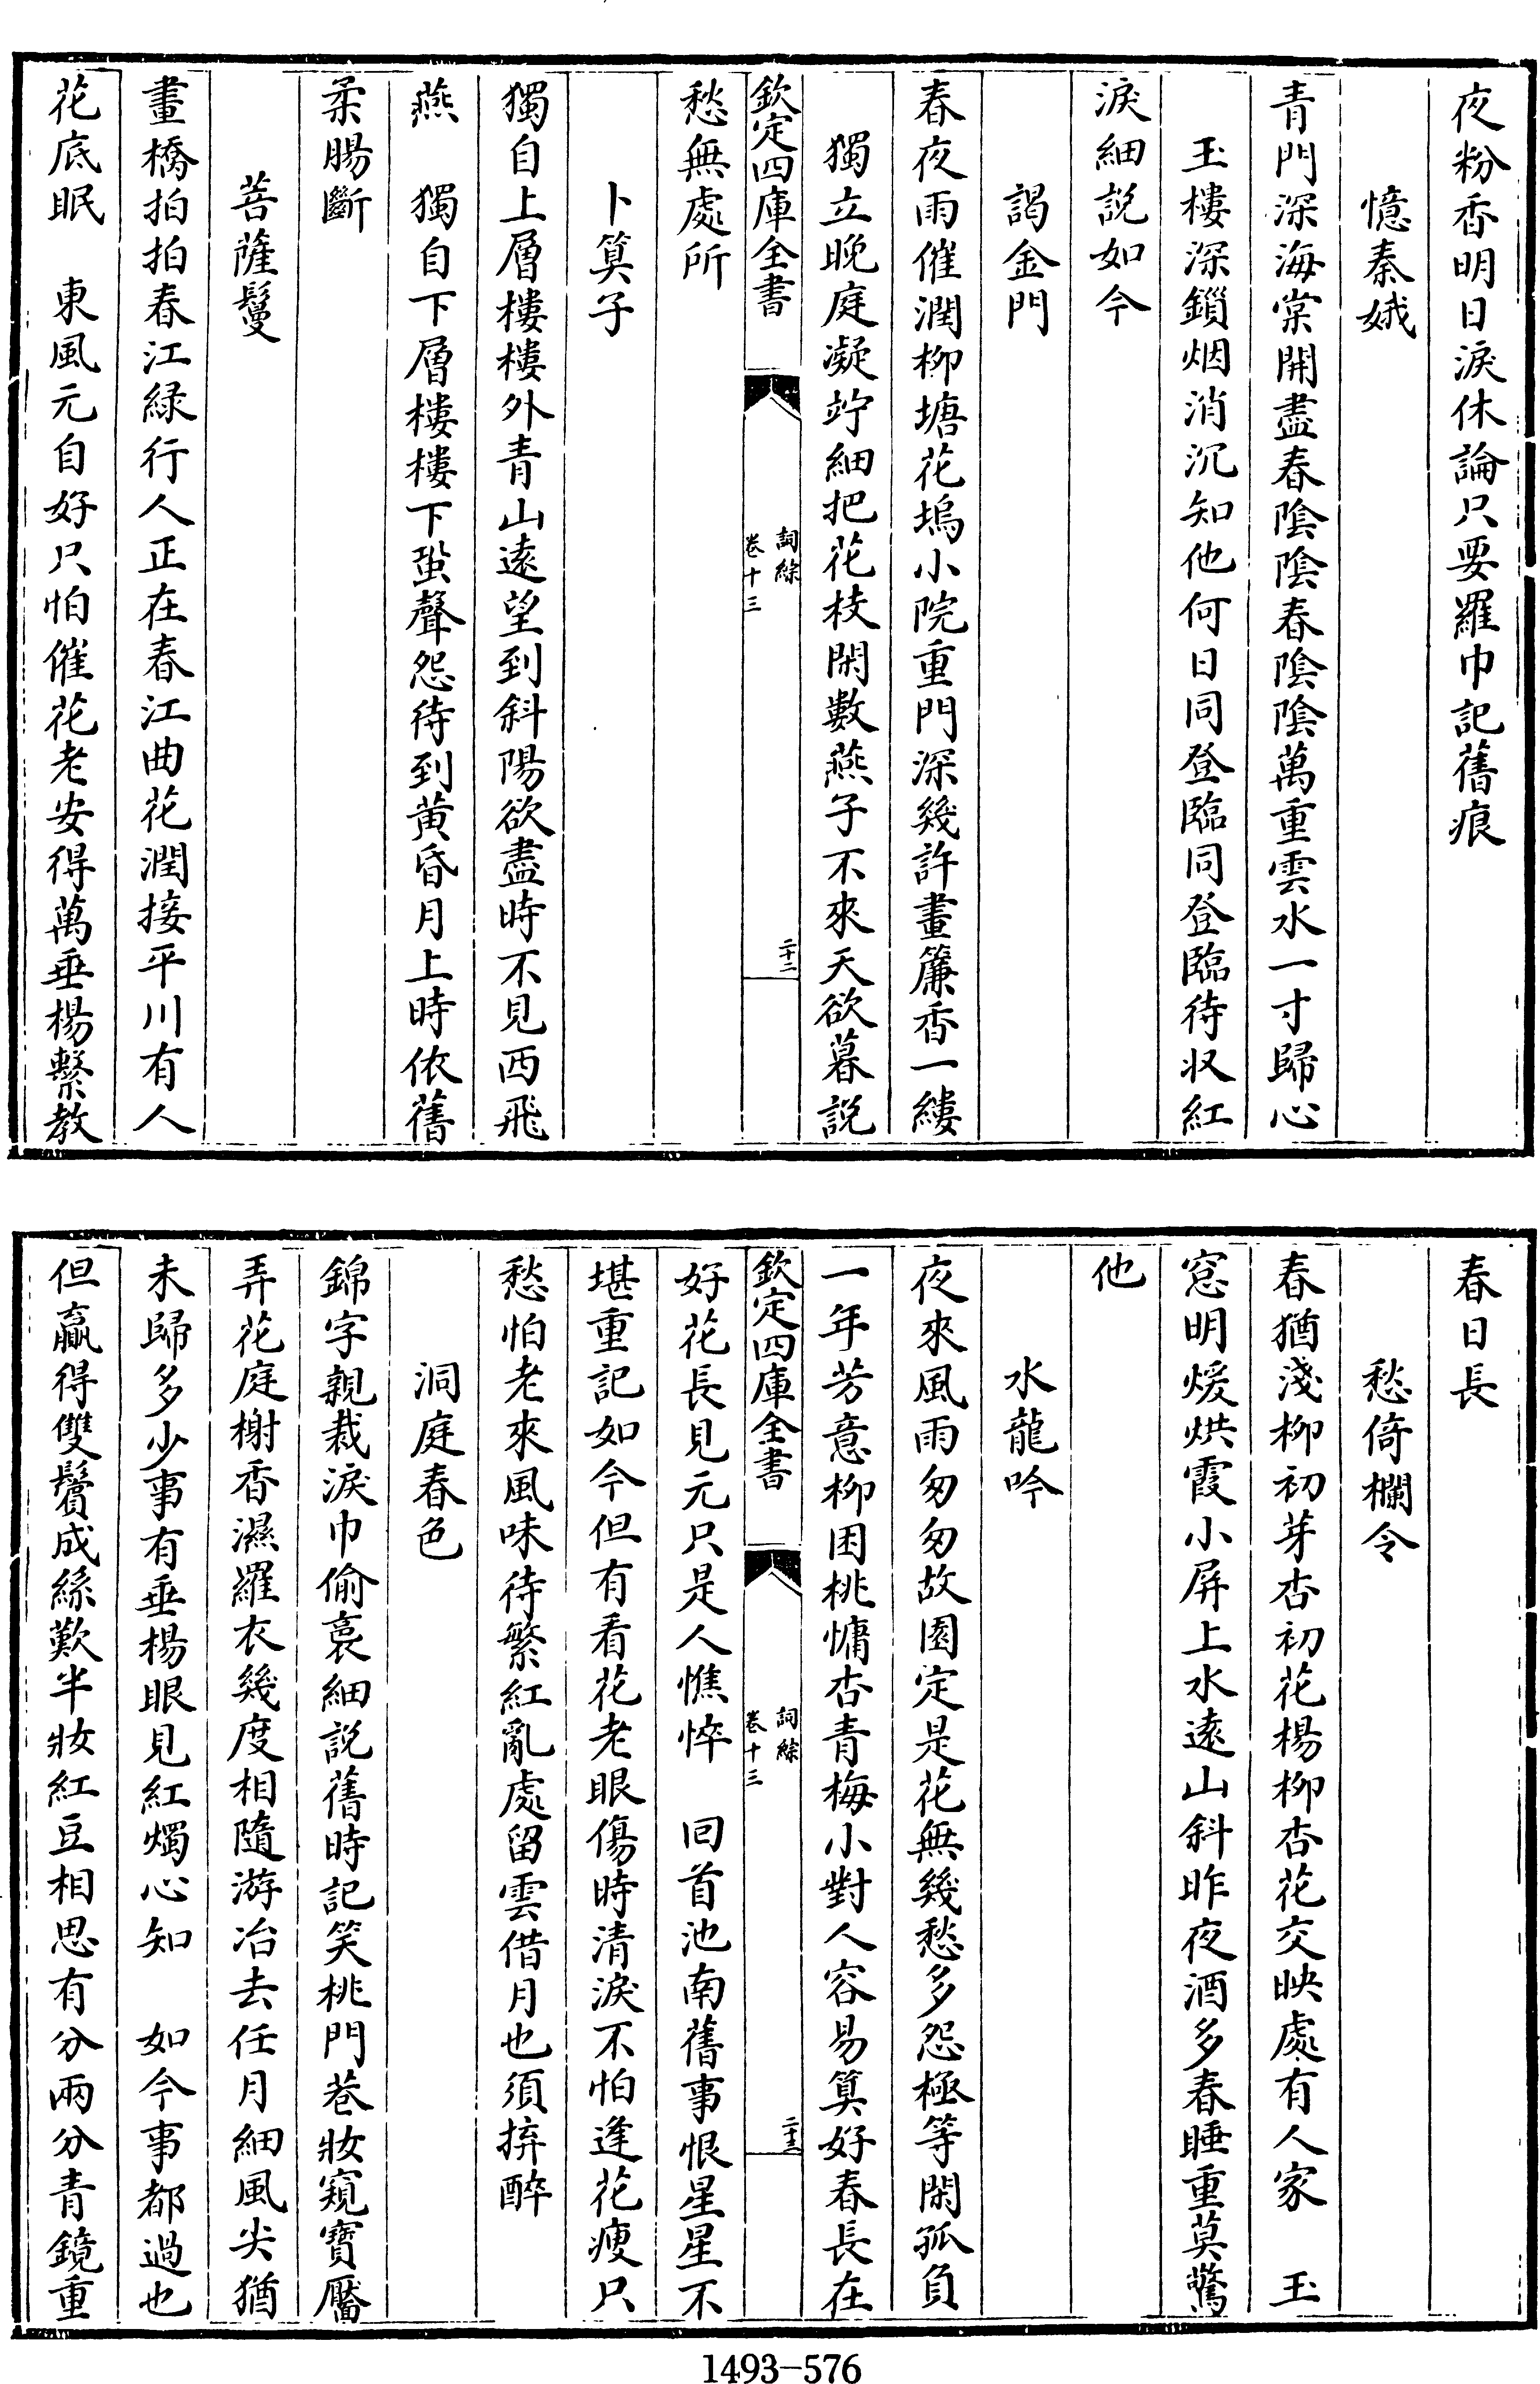 夜粉香明日淚休論只要羅巾記舊痕
憶秦娥
青門深海棠開盡春陰陰春陰陰萬重雲水一寸歸心
玉樓深鎖烟消沉知他何日同登臨同登臨待収紅
淚細説如今
謁金門
春夜雨催潤柳塘花塢小院重門深幾許畫簾香一縷
獨立晚庭凝竚細把花枝閑數燕子不來天欲暮説
欽定四庫全書
詞綜
卷十三
二十二
愁無處所
卜算子
獨自上層樓樓外青山遠望到斜陽欲盡時不見西飛
燕　獨自下層樓樓下蛩聲怨待到黃昏月上時依舊
柔腸斷
菩薩鬘
畫橋拍拍春江緑行人正在春江曲花潤接平川有人
花底眠　東風元自好只怕催花老安得萬垂楊繫教
春日長
愁倚欄令
春猶淺柳初芽杏初花楊柳杏花交映處有人家　玉
窓明煖烘霞小屏上水遠山斜昨夜酒多春睡重莫驚
他
水龍吟
夜來風雨匆匆故園定是花無幾愁多怨極等閑孤負
一年芳意柳困桃慵杏青梅小對人容易算好春長在
欽定四庫全書
詞綜
卷十三
二十三
好花長見元只是人憔悴　回首池南舊事恨星星不
堪重記如今但有看花老眼傷時清淚不怕逢花瘦只
愁怕老來風味待繁紅亂處留雲借月也須拚醉
洞庭春色
錦字親裁淚巾偷裛細説舊時記笑桃門巷妝窺寶靨
弄花庭榭香濕羅衣幾度相隨游冶去任月細風尖猶
未歸多少事有垂楊眼見紅燭心知　如今事都過也
但贏得雙鬢成絲歎半妝紅豆相思有分兩分青鏡重
1493-576